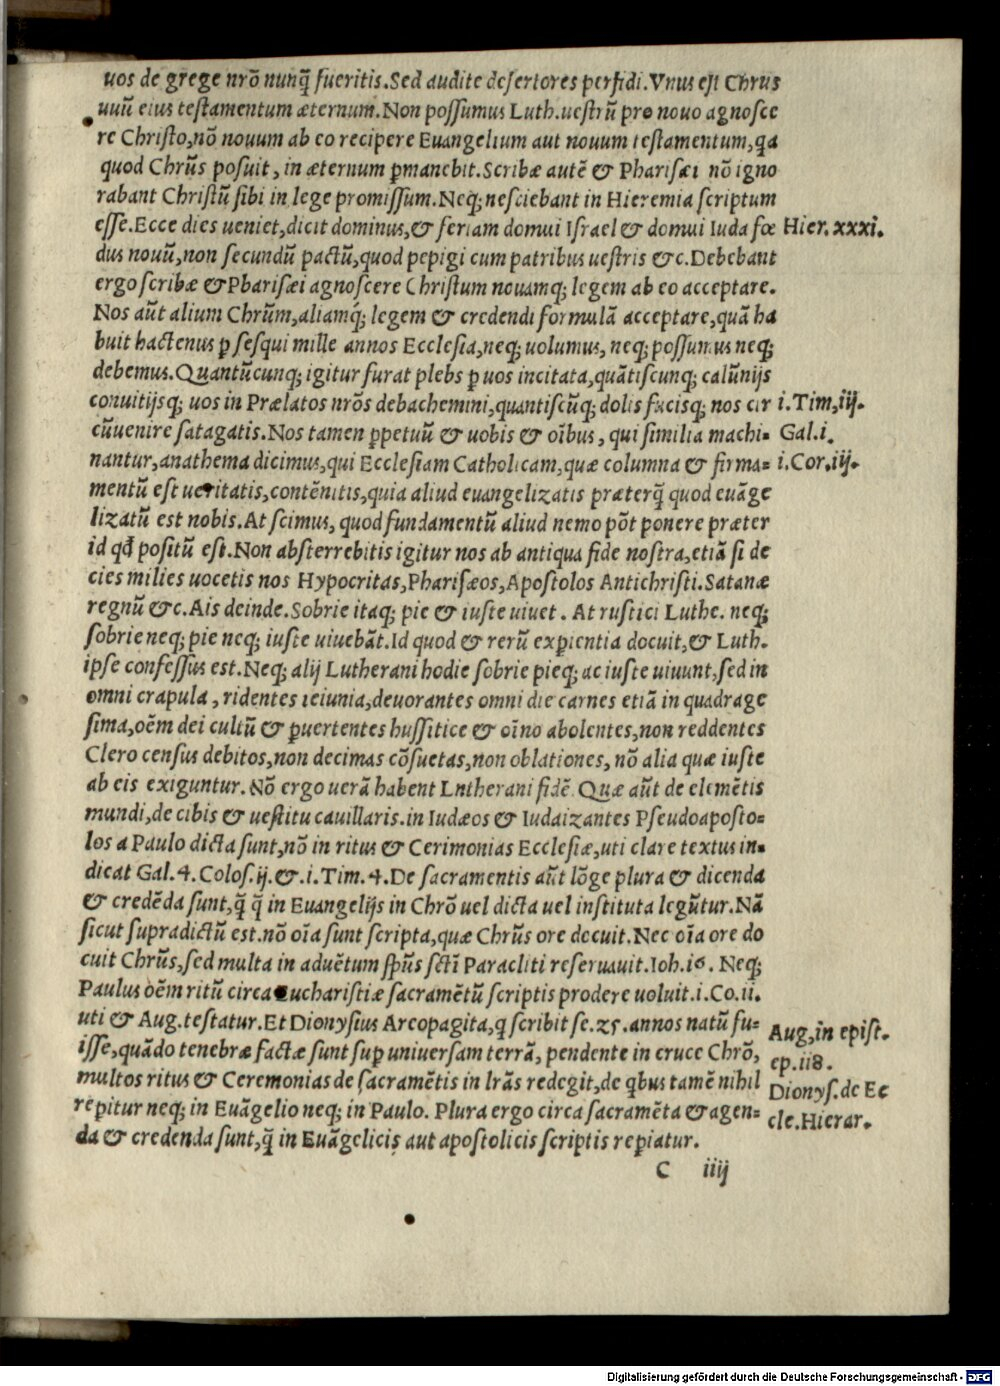 uos de grege nrõ nunq̃ fueritis. Sed audite desertores perfidi. Vnus est Chrus
unũ eius testamentum æternum. Non possumus Luth. uestrũ pro nouo agnosce
re Christo, nõ nouum ab eo recipere Euangelium aut nouum testamentum, qa
quod Chrũs posuit, in æternum ꝑmanebit. Scribæ autẽ & Pharisæi nõ igno
rabant Christũ sibi in lege promissum. Neq; nesciebant in Hieremia scriptum
esse. Ecce dies ueniet, dicit dominus, & feriam domui Israel & domui Iuda fœ Hier. xxxi.
dus nouũ, non secundũ pactũ, quod pepigi cum patribus uestris &c. Debebant
ergo scribæ & Pharisæi agnoscere Christum nouamq; legem ab eo acceptare.
Nos aũt alium Chrũm, aliamq́; legem & credendi formulã acceptare, quã ha
buit hactenus ꝑ sesqui mille annos Ecclesia, neq; uolumus, neq; possumus neq;
debemus. Quantũcunq; igitur furat plebs ꝑ uos incitata, quãtiscunq; calũnijs
conuitijsq; uos in Prælatos nrõs debachemini, quantiscũq; dolis fucisq; nos cir i. Tim, iij.
cũuenire satagatis. Nos tamen ꝑpetuũ & uobis & oĩbus, qui similia machi= Gal. i.
nantur, anathema dicimus, qui Ecclesiam Catholicam, quæ columna & firma= i. Cor. iij.
mentũ est ueritatis, contẽnitis, quia aliud euangelizatis præterq̃ quod euãge
lizatũ est nobis. At scimus, quod fundamentũ aliud nemo põt ponere præter
id qđ positũ est. Non absterrebitis igitur nos ab antiqua fide nostra, etiã si de
cies milies uocetis nos Hypocritas, Pharisæos, Apostolos Antichristi. Satanæ
regnũ &c. Ais deinde. Sobrie itaq; pie & iuste uiuet. At rustici Luthe. neq;
sobrie neq; pie neq; iuste uiuebãt. Id quod & rerũ exꝑientia docuit, & Luth.
ipse confessus est. Neq; alij Lutherani hodie sobrie pieq; ac iuste uiuunt, sed in
omni crapula, ridentes ieiunia, deuorantes omni die carnes etiã in quadrage
sima, oẽm dei cultũ & ꝑuertentes hussitice & oĩno abolentes, non reddentes
Clero census debitos, non decimas cõsuetas, non oblationes, nõ alia quæ iuste
ab eis exiguntur. Nõ ergo uerã habent Lntherani fidẽ. Quæ aũt de elemẽtis
mundi, de cibis & uestitu cauillaris. in Iudæos & Iudaizantes Pseudoaposto=
los a Paulo dicta sunt, nõ in ritus & Cerimonias Ecclesiæ, uti clare textus in=
dicat Gal. 4. Colos. ij. &. i. Tim. 4. De sacramentis aũt lõge plura & dicenda
& credẽda sunt, q̃ q̃ in Euangelijs in Chrõ uel dicta uel instituta legũtur. Nã
sicut supradictũ est. nõ oĩa sunt scripta, quæ Chrũs ore docuit. Nec oĩa ore do
cuit Chrũs, sed multa in aduẽtum spũs sctĩ Paracliti reseruauit. Ioh. 16. Neq;
Paulus oẽm ritũ circa Eucharistiæ sacramẽtũ scriptis prodere uoluit. i. Co. ii.
uti & Aug. testatur. Et Dionysius Arcopagita, q scribit se. 25. annos natũ fu= Aug, in epist.
isse, quãdo tenebræ factæ sunt suꝑ uniuersam terrã, pendente in cruce Chrõ, ep. 118.
multos ritus & Ceremonias de sacramẽtis in lrãs redegit, de qbus tamẽ nihil Dionys. de Ec
reꝑitur neq; in Euãgelio neq; in Paulo. Plura ergo circa sacramẽta & agen= cle. Hierar.
da & credenda sunt, q̃ in Euãgelicis aut apostolicis scriptis reꝑiatur.
C iiij
Digitalisierung gefördert durch die Deutsche Forschungsgemeinschaft - DFG